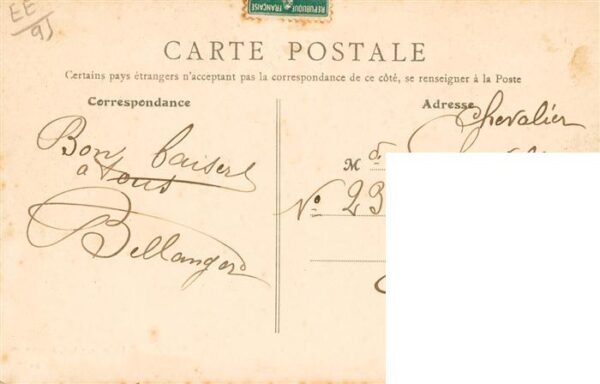 EE
95
REPUBLIQUE FRANÇAISE
CARTE POSTALE
Certains pays étrangers n'acceptant pas la correspondance de ce côté, se renseigner à la Poste
Correspondance
Bon baisers
à tous
Bellanger
Adresse
Chevalier
M
No 23